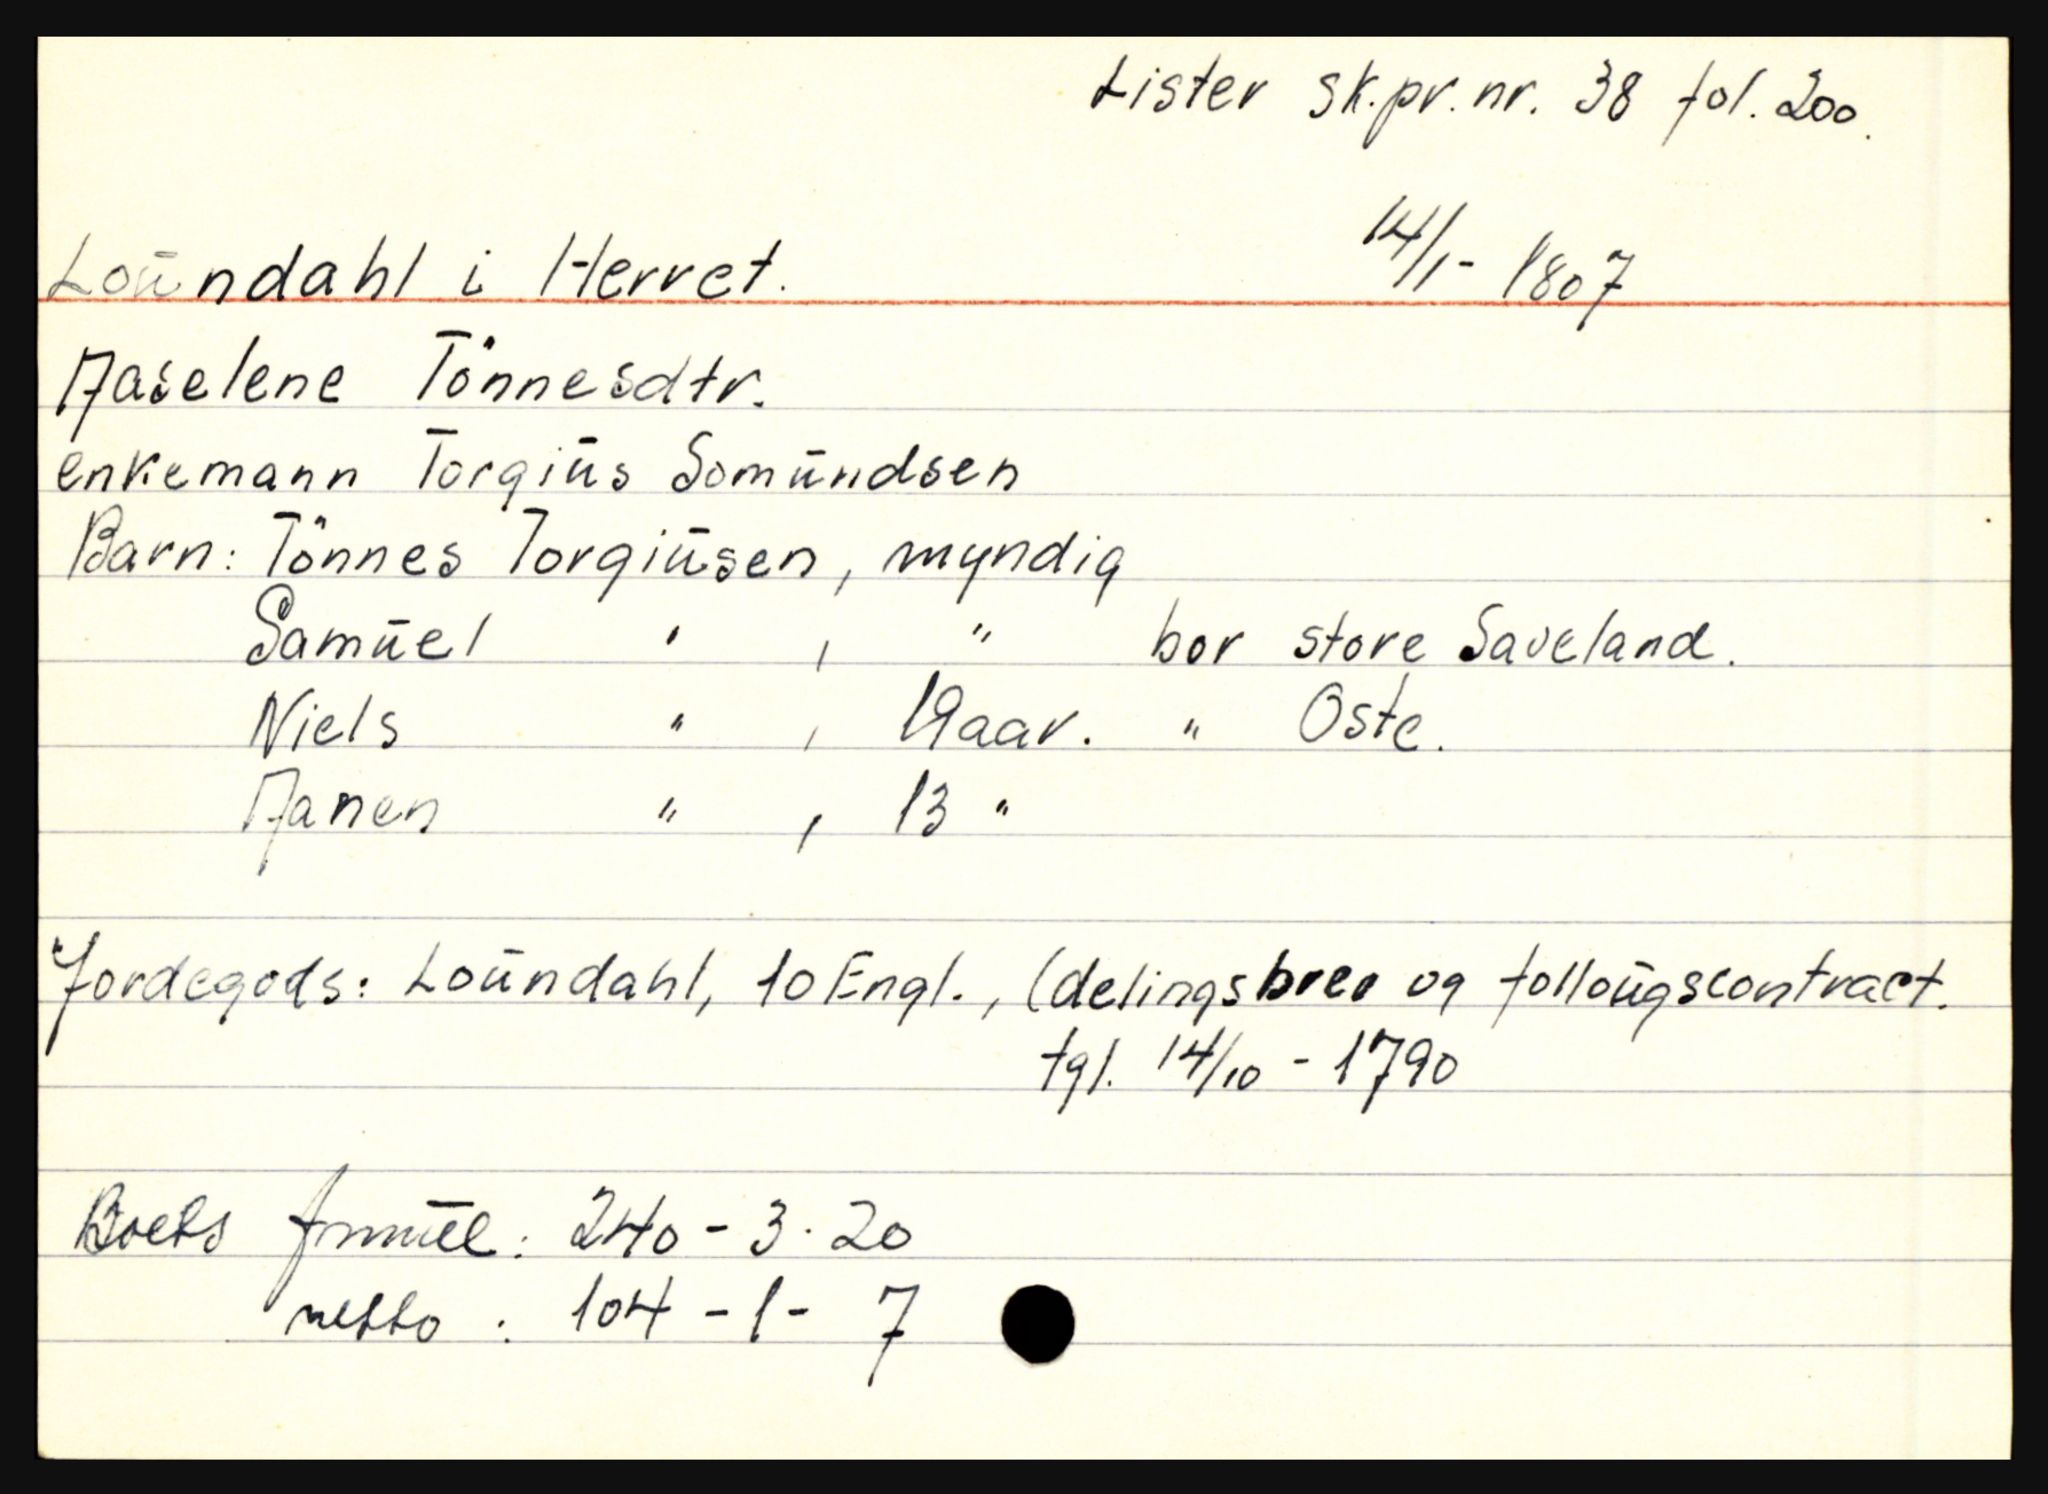 Lister sk.pr.nr. 38 fol. 200.
14/1- 1807
Loündahl i Herret.
Aaselene Tönnesdtr.
enkemann Torgiüs Somündsen
Barn: Tönnes Torgiüsen, myndig
Samüel " , " bor store Saveland.
Niels " , 19 aar. " Oste.
Aanen " , 13 "
Jordegods: Loündahl, 10 Engl., (delingsbrev og følloügscontract.
tgl. 14/10 - 1790
Boets 240 - 3 - 20
netto : 104 - 1 - 7